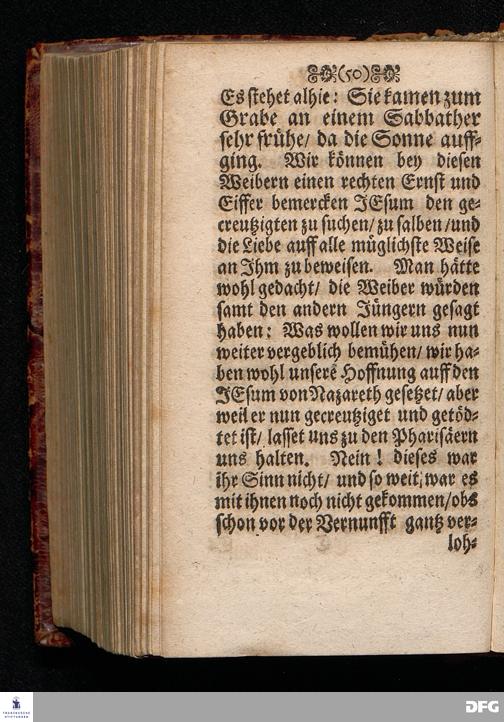 (50)
Es stehet alhie: Sie kamen zum
Grabe an einem Sabbather
sehr frühe/ da die Sonne auff-
ging. Wir können bey diesen
Weibern einen rechten Ernst und
Eiffer bemercken JEsum den ge-
creutzigten zu suchen/ zu salben/ und
die Liebe auff alle müglichste Weise
an Ihm zu beweisen. Man hätte
wohl gedacht/ die Weiber würden
samt den andern Jüngern gesagt
haben: Was wollen wir uns nun
weiter vergeblich bemühen/ wir ha-
ben wohl unserē Hoffnung auff den
JEsum von Nazareth gesetzet/ aber
weil er nun gecreutziget und getöd-
tet ist/ lasset uns zu den Pharisäern
uns halten. Nein! dieses war
ihr Sinn nicht/ und so weit, war es
mit ihnen noch nicht gekommen/ obs
schon vor der Vernunfft gantz ver-
loh-
FRANCKESCHE
STIFTUNGEN
DFG